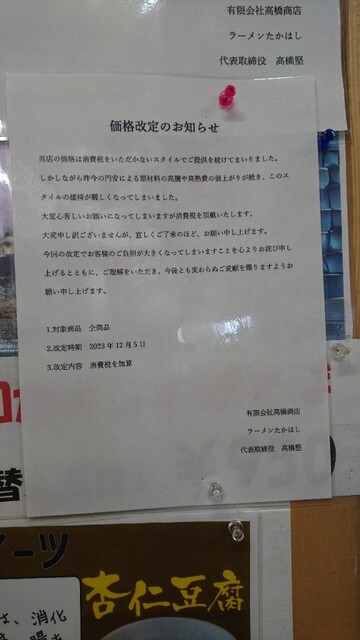 有限会社髙橋商店
ラーメンたかはし
代表取締役　髙橋堅
価格改定のお知らせ
当店の価格は消費税をいただかないスタイルでご提供を続けてまいりました。
しかしながら昨今の円安による原材料の高騰や高熱費の値上がりが続き、このス
タイルの維持が難しくなってしまいました。
大変心苦しいお願いになってしまいますが消費税を頂戴いたします。
大変申し訳ございませんが、宜しくご了承のほど、お願い申し上げます。
今回の改定でお客様のご負担が大きくなってしまいますことを心よりお詫び申し
上げるとともに、ご理解をいただき、今後とも変わらぬご愛顧を賜りますようお
願い申し上げます。
1.対象商品　全商品
2.改定時期　2023年12月5日
3.改定内容　消費税を加算
有限会社髙橋商店
ラーメンたかはし
代表取締役　髙橋堅
替
ーツ
杏仁豆腐
は、消化